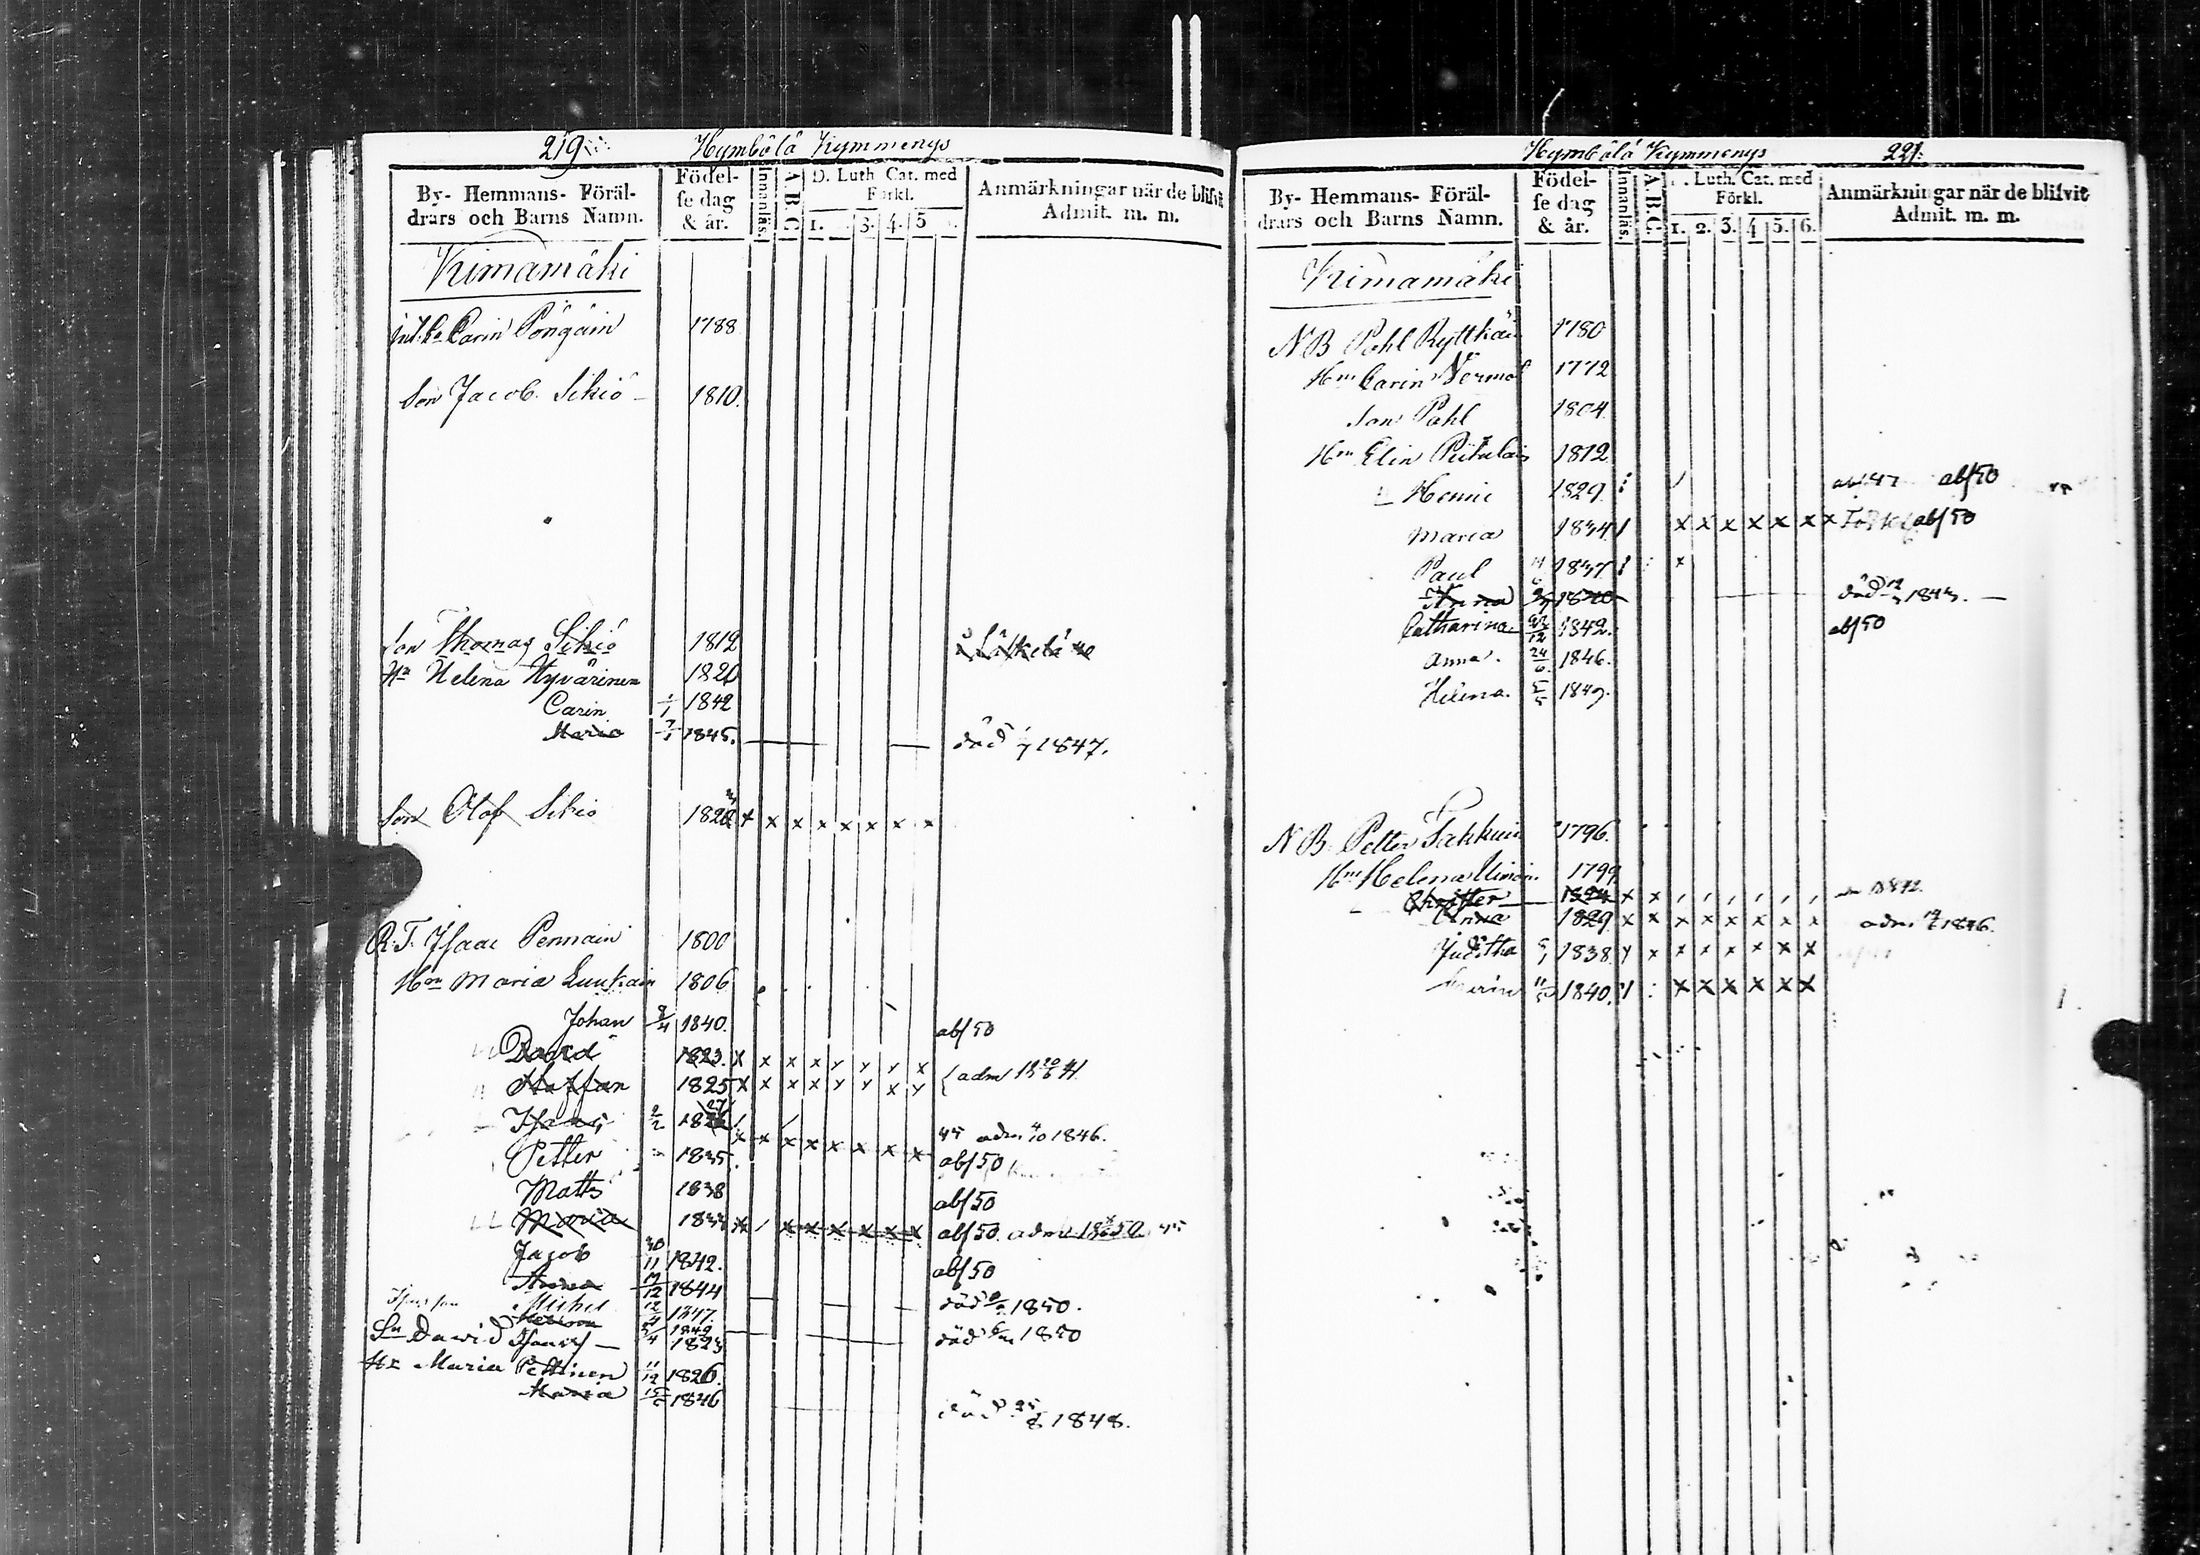 219
Hymbölä Kymmenys
By- Hemmans- Föräl-
drars och Barns Namn.
Födel-
se dag
& år.
Innanläs.
A.B.C.
D. Luth. Cat. med
Förkl.
1. 3. 4. 5
Anmärkningar när de blifvit
Admit. m. m.
Kiimamäki
Carin Pöngäin 1788
Son Jacob Sikiö 1810.
Son Thomas Sikiö 1812
Hu Helena Hyvärinen 1820
Carin 1/1 1842
Maria 1845. död 1847.
Son Olof Sikiö 182
R. T. Isaac Pennain 1800
Hu Maria Luukain 1806
Johan 8/4 1840. abs 50
David 1823. x x x x x x x x
Staffan 1825 x x x x x x x x adm
Isaac 2/2 18 45 adm 1846.
Petter 1835. abs 50
Matts 1838 abs 50
Maria 1833 abs 50. adm
Jacob 30/11 1842. abs 50
Anna 17/12 1844 död 1850.
Michel 12/4 1847.
1849 död 1850
Sn David Isaacs 1823
Hu Maria Pettinen 11/12 1826.
Maria 1846 död 1848.
Hymbölä Kymmenys
221.
By- Hemmans- Föräl-
drars och Barns Namn.
Födel-
se dag
& år.
Innanläs.
A.B.C.
Luth. Cat. med
Förkl.
1. 2. 3. 4 5. 6.
Anmärkningar när de blifvit
Admit. m. m.
Kiimamäki
N B Påhl Rytthäin 1780
Hu Carin Vermöl 1772
Son Påhl 1804
Hu Elin 1812
Henric 1829 abs 47 abs 50
Maria 1834 x x x x x x x abs 50
Paul 1837 x
Anna 1840 död 1843.
Catharina 1842. abs 50
Anna. 24/6 1846.
Helena. 5/5 1849.
N B Petter Takkuin 1796.
Hu Helena 1799
Christer 1824 x x
Anna 1829 x x x x x x x x adm 1846.
Juditha 1838 x x x x x x x x
1840. x x x x x x